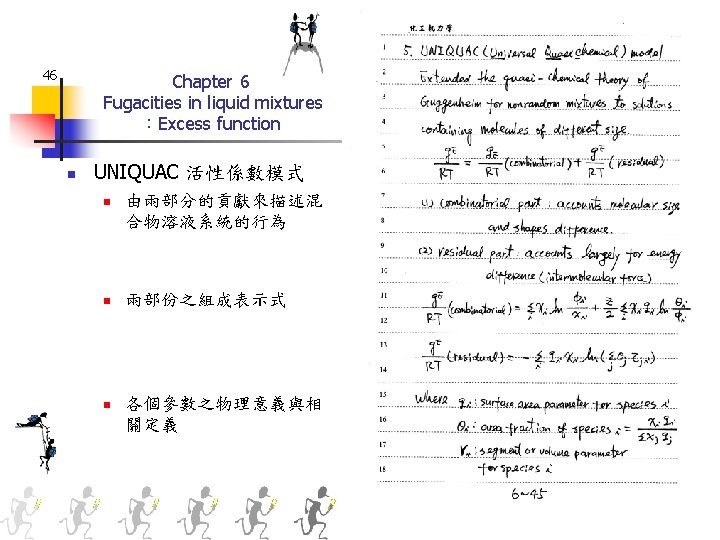 46
Chapter 6
Fugacities in liquid mixtures
：Excess function
UNIQUAC 活性係數模式
由兩部分的貢獻來描述混
合物溶液系統的行為
兩部份之組成表示式
各個參數之物理意義與相
關定義
化工熱力學
1 5. UNIQUAC (Universal Quasi chemical) model
2 Extended the quasi-chemical theory of
3 Guggenheim for nonrandom mixtures to solutions
4 containing molecules of different size
5 g^E/RT = g^E/RT (combinatorial) + g^E/RT (residual)
6
7 (1) combinatorial part : accounts molecular size
8 and shapes difference.
9 (2) residual part : accounts largely for energy
10 difference (intermolecular force)
11 g^E/RT (combinatorial) = Σ_i x_i ln ϕ_i/x_i + z/2 Σ_i x_i q_i ln θ_i/ϕ_i
12
13
14 g^E/RT (residual) = - Σ_i q_i x_i ln (Σ_j θ_j τ_ji)
15 Where q_i : surface area parameter for species i
16 θ_i : area fraction of species i = x_i q_i / Σ x_j q_j
17 r_i : segment or volume parameter
18 for species i
6-45